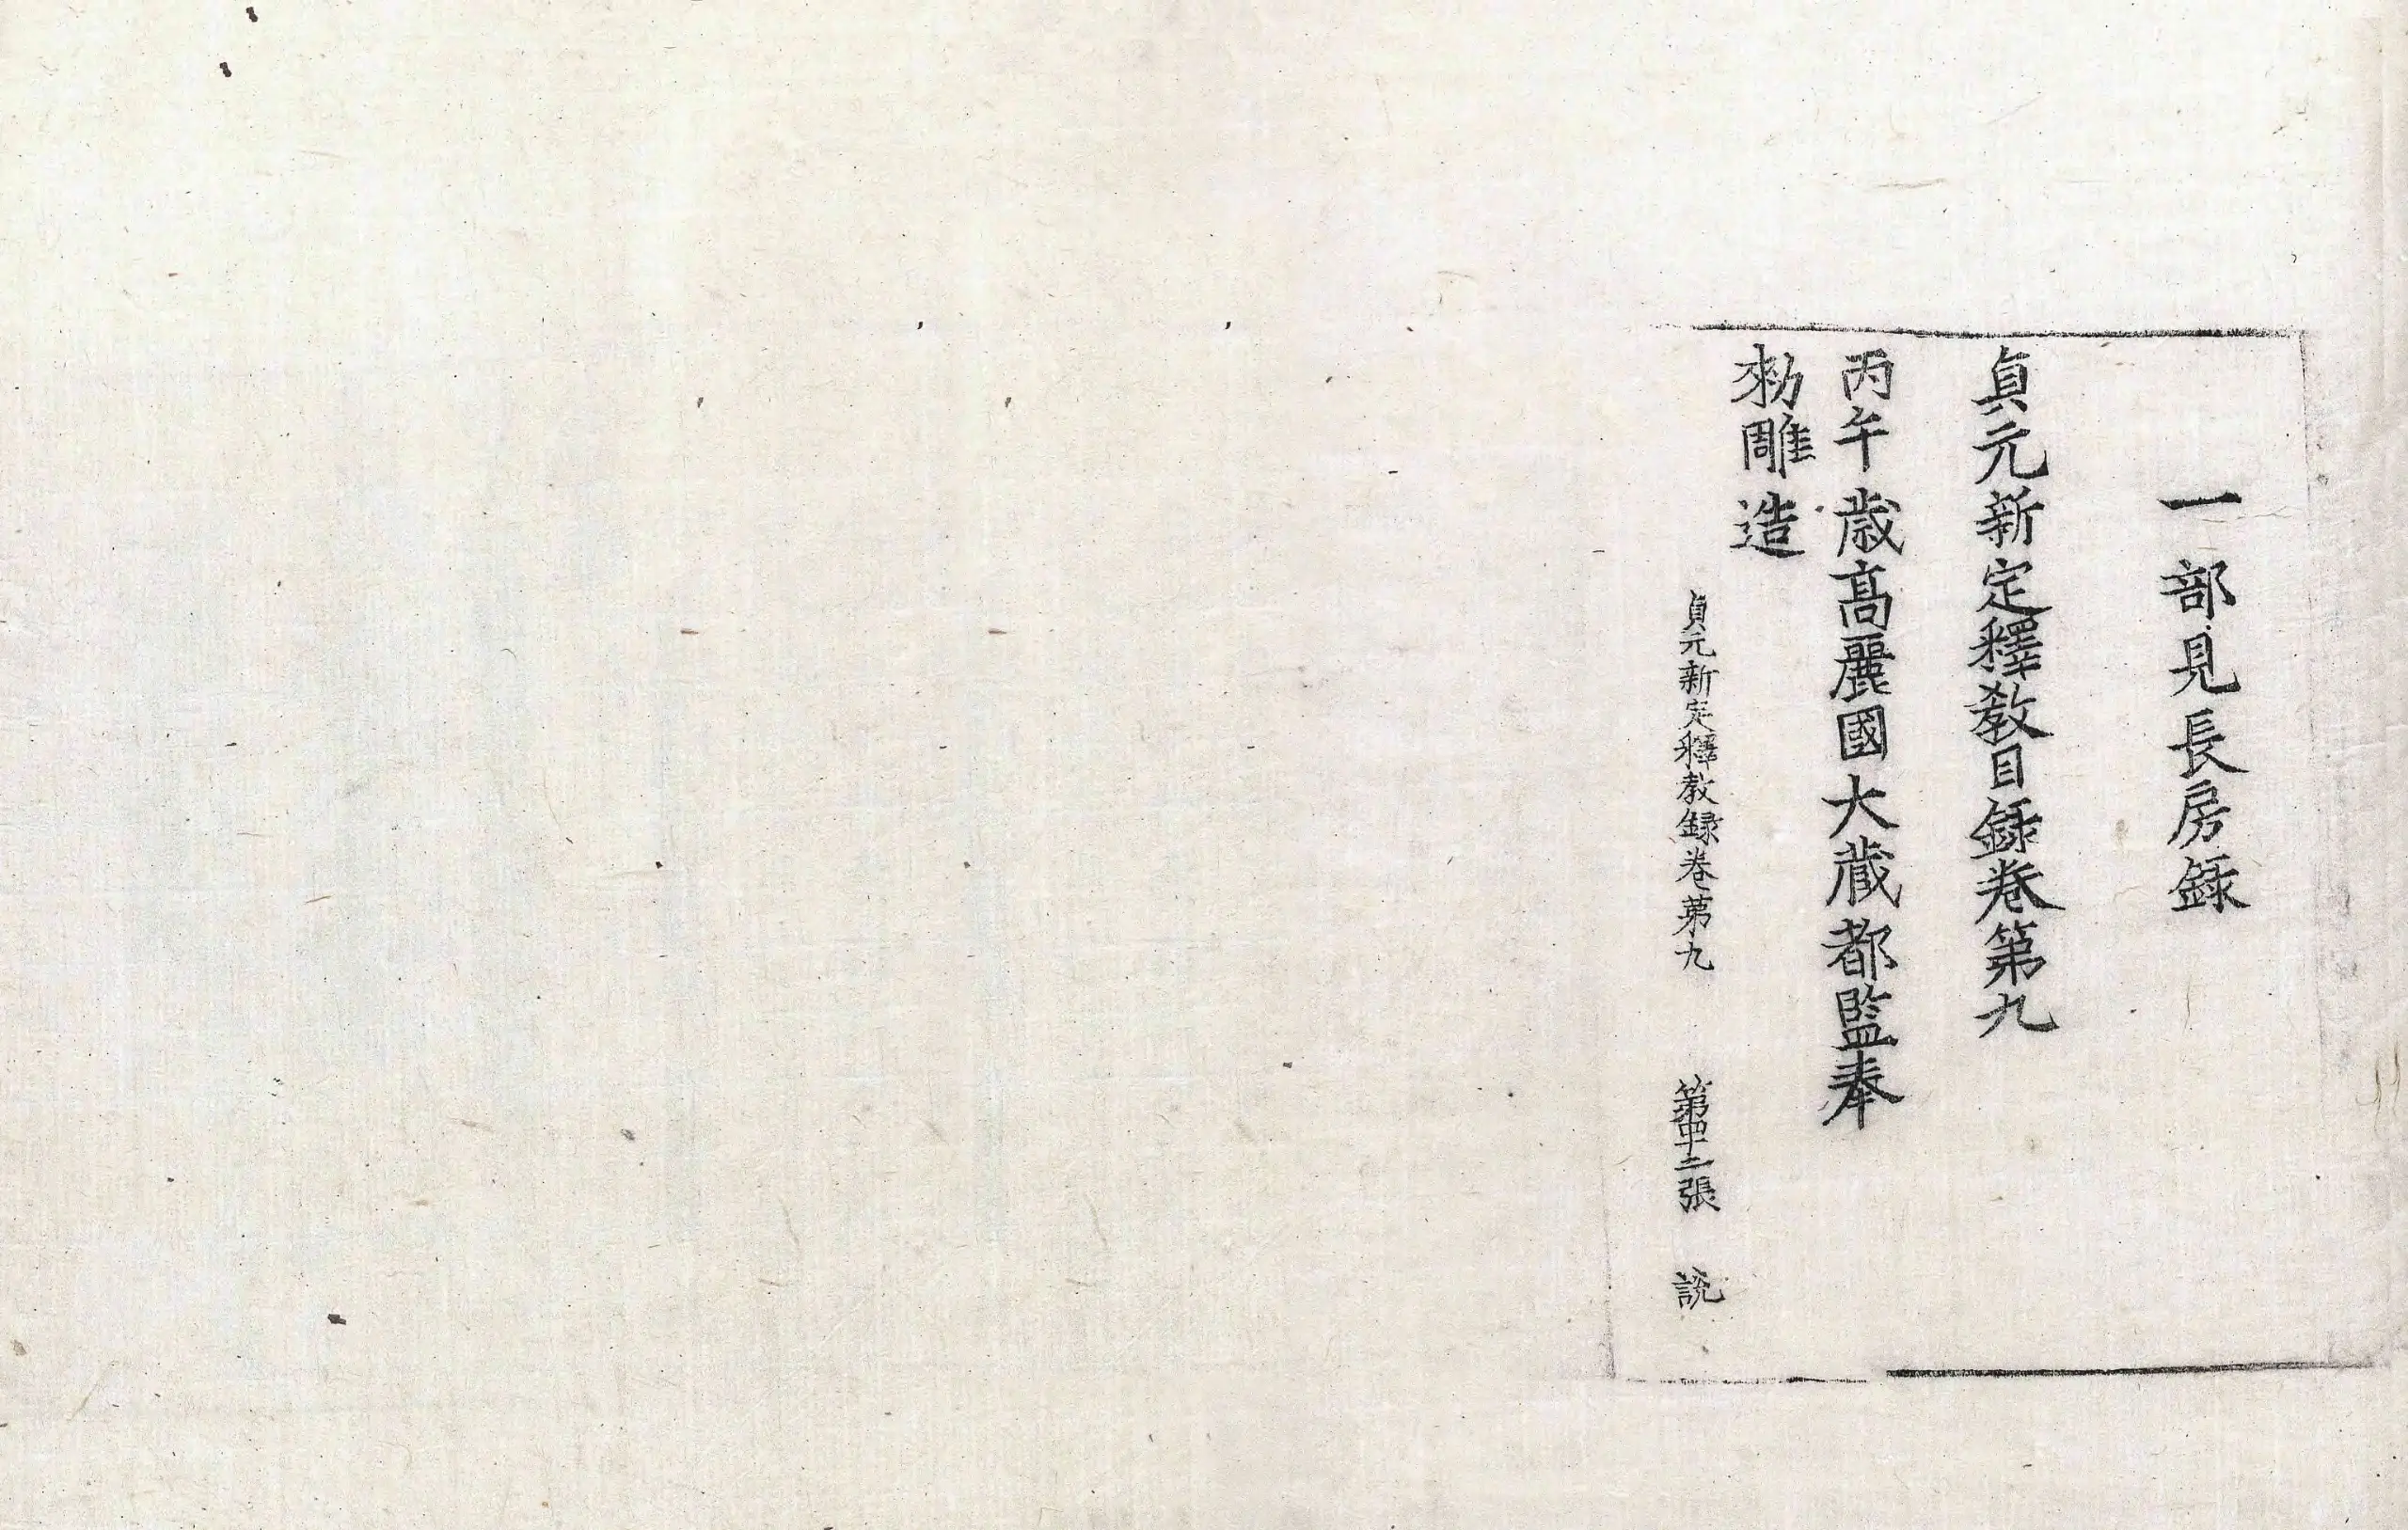 一部見長房録
貞元新定釋教目録卷第九
丙午歳高麗國大藏都監奉
勑雕造
貞元新定釋教録卷第九 第四十二張 說